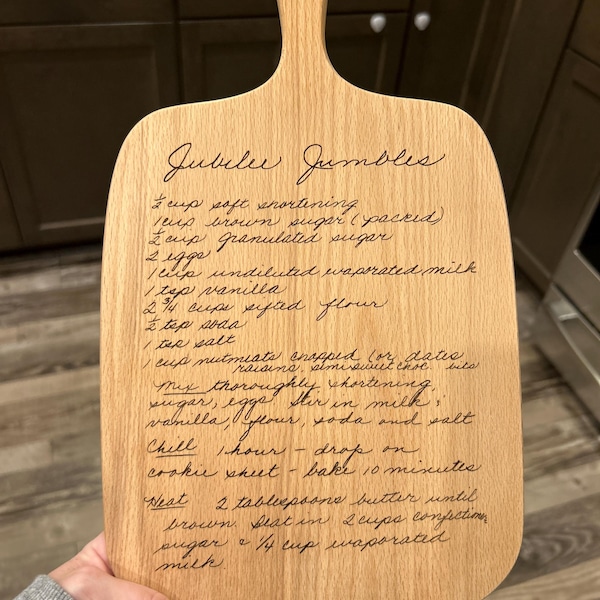 Jubilee Jumbles
½ cup soft shortening
1 cup brown sugar (packed)
½ cup granulated sugar
2 eggs
1 cup undiluted evaporated milk
1 tsp vanilla
2 ¾ cups sifted flour
½ tsp soda
1 tsp salt
1 cup nutmeats chopped (or dates
raisins, semi sweet choc. bits
Mix thoroughly shortening,
sugar, eggs. Stir in milk &
vanilla, flour, soda and salt
Chill 1 hour - drop on
cookie sheet - bake 10 minutes
Heat 2 tablespoons butter until
brown. Beat in 2 cups confectioners
sugar & ¼ cup evaporated
milk.